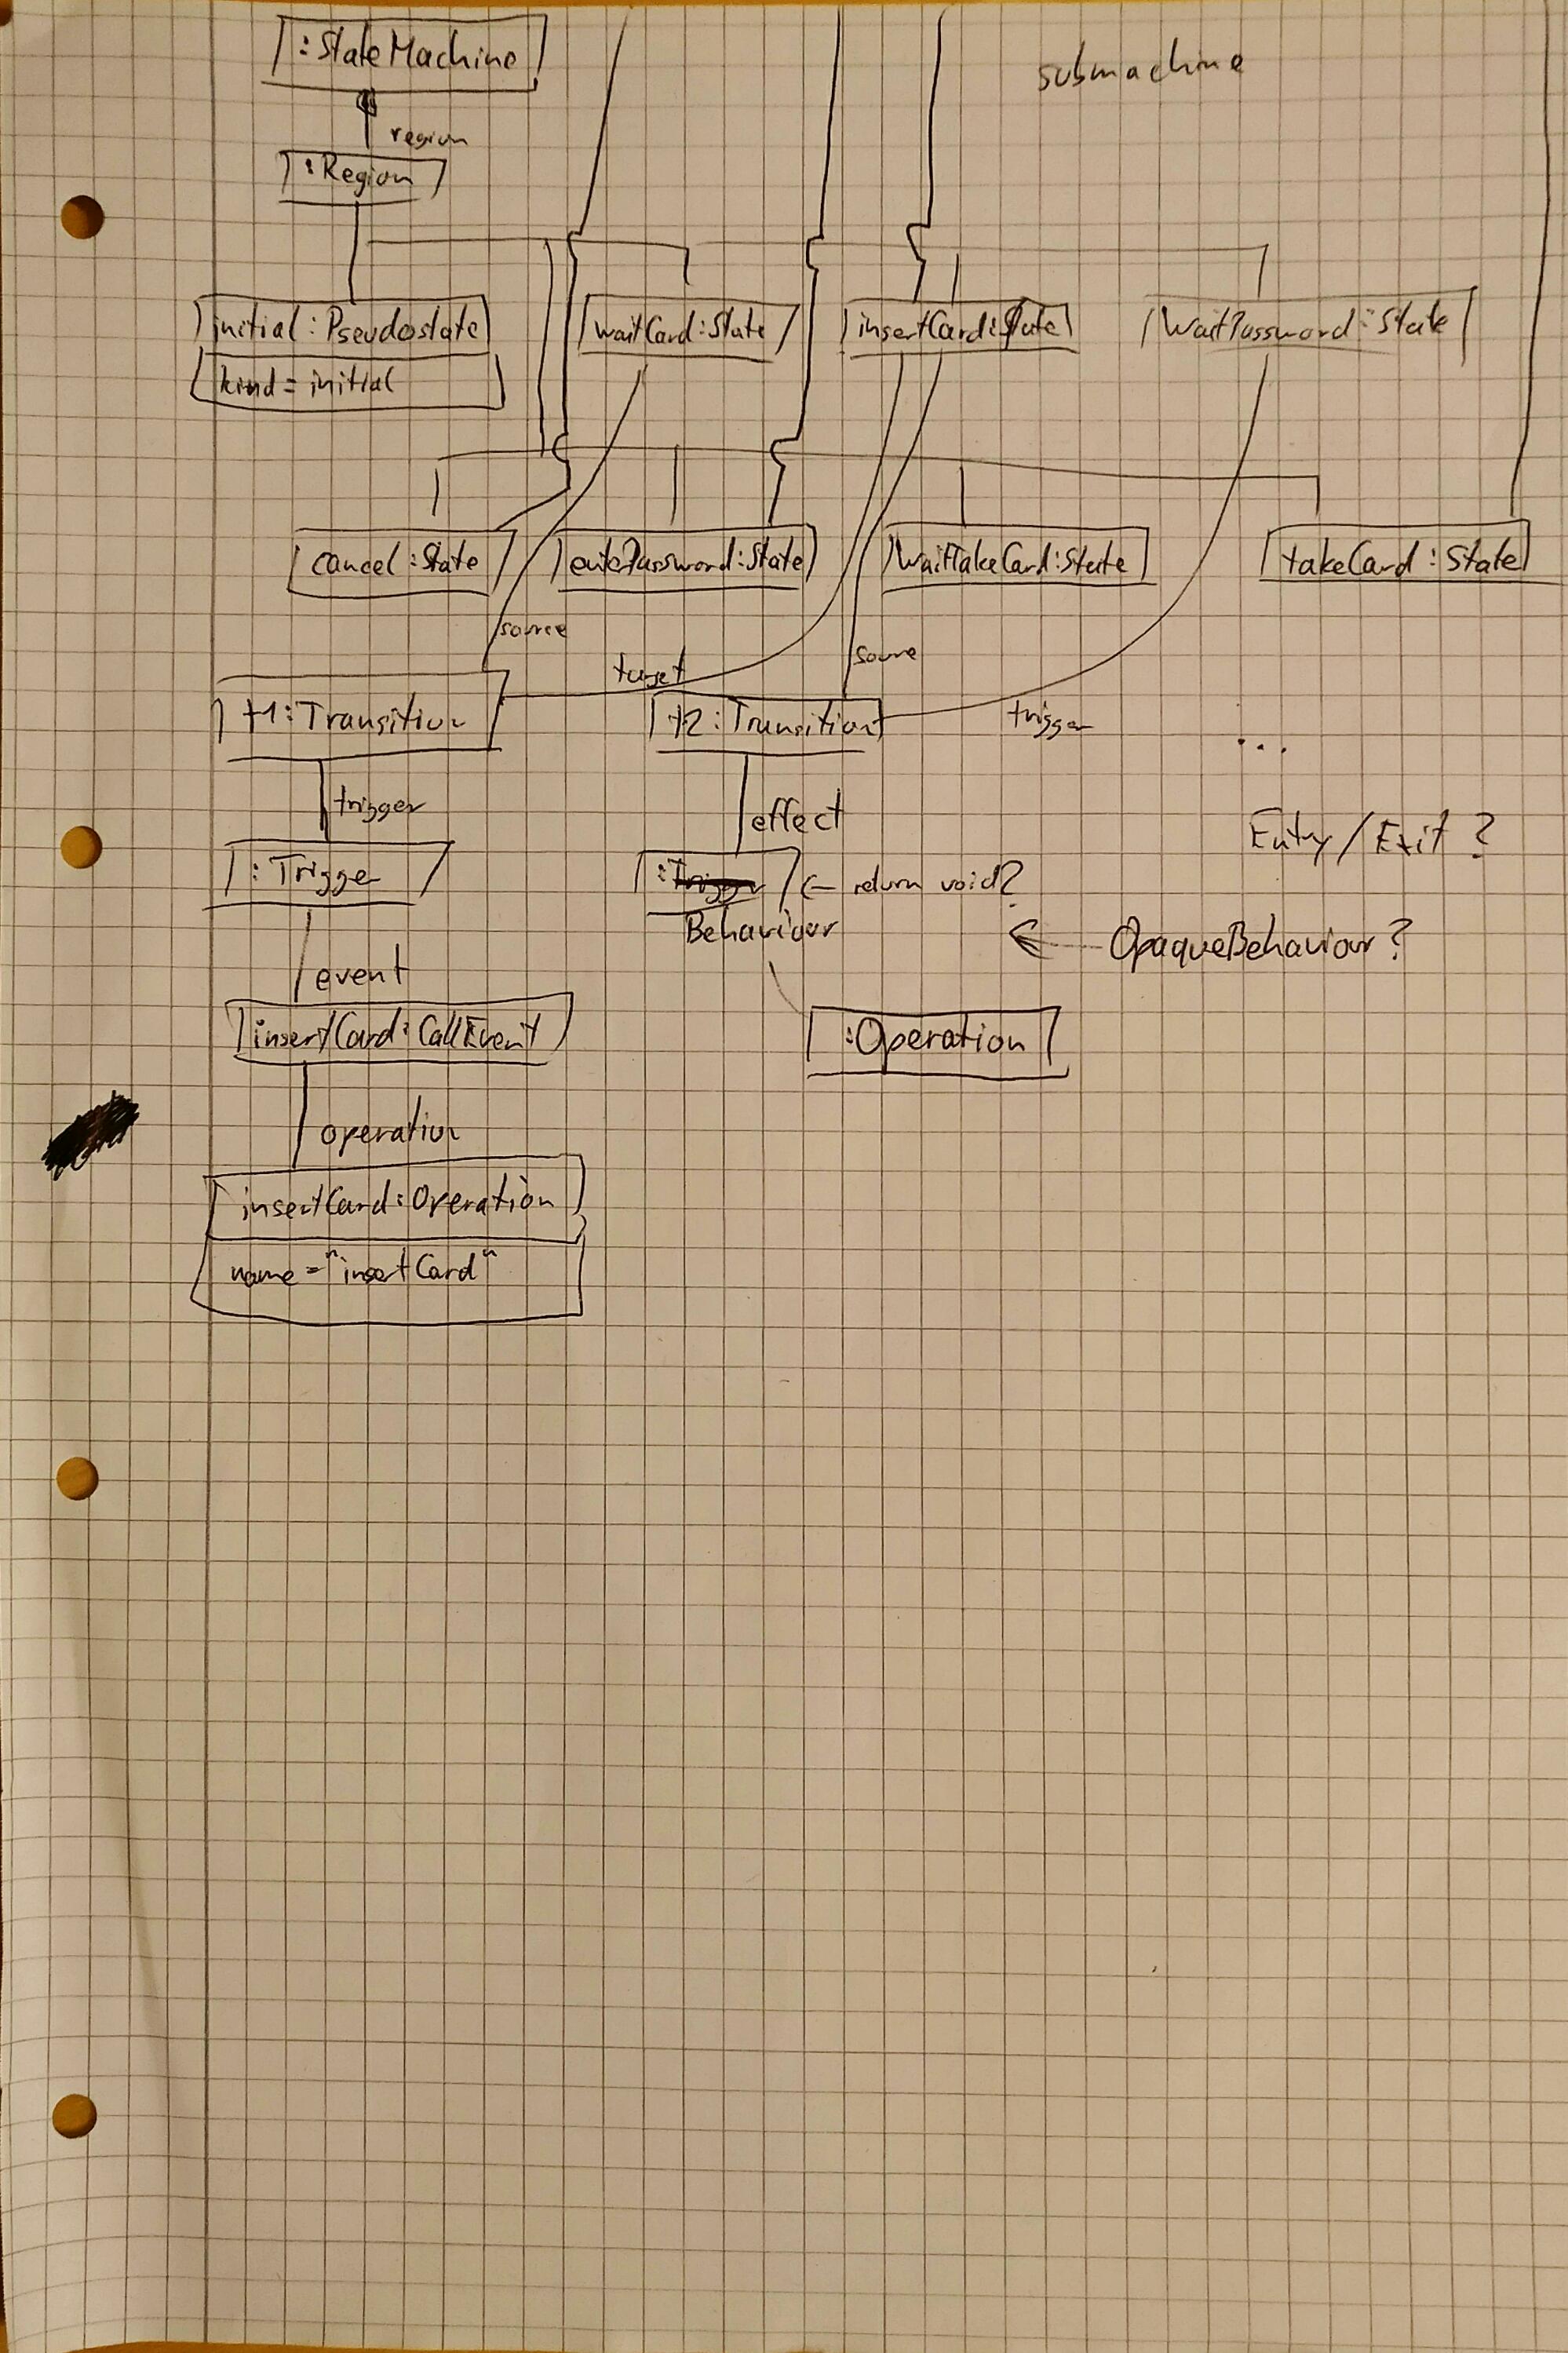 :StateMachine
submachine
region
:Region
initial:Pseudostate
kind = initial
waitCard:State
insertCard:State
WaitPassword:State
cancel:State
enterPassword:State
WaitTakeCard:State
takeCard:State
source
target
source
t1:Transition
t2:Transition
trigger
...
trigger
effect
Entry/Exit ?
:Trigger
:Trigger
← return void?
Behaviour
← OpaqueBehaviour?
event
insertCard:CallEvent
:Operation
operation
insertCard:Operation
name = "insertCard"